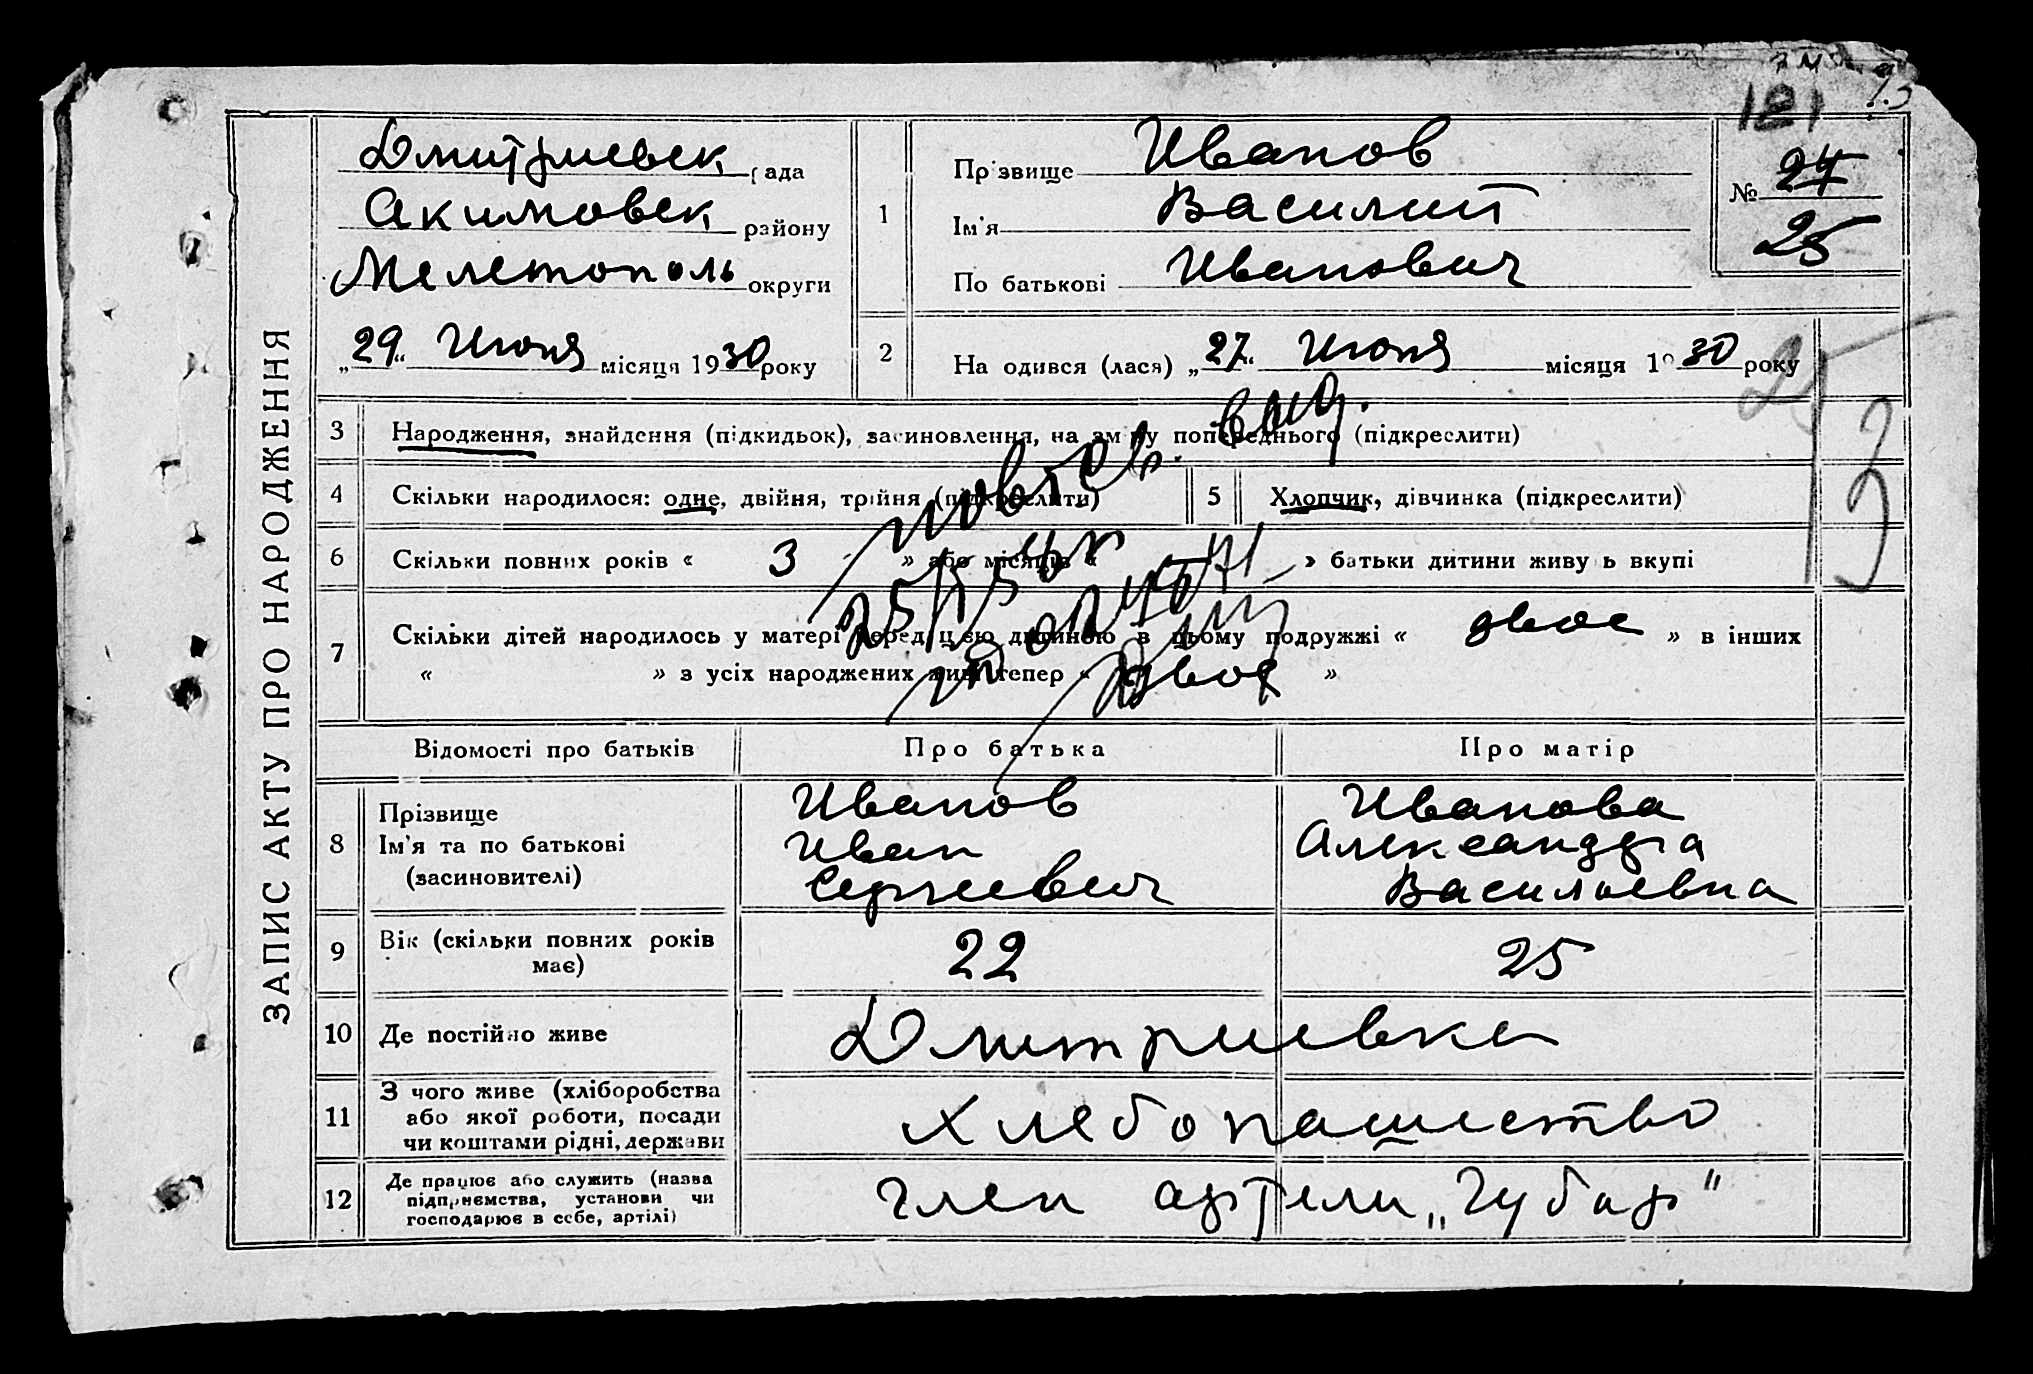 ЗАПИС АКТУ ПРО НАРОДЖЕННЯ
121
Дмитриевск рада
Акимовск району
Мелетополь округи
„29“ Июня місяця 1930 року
1
Прізвище Иванов
Ім'я Василий
По батькові Иванович
№ 24
25
2
На одився (лася) „27“ Июня місяця 1930 року
25
3 Народження, знайдення (підкидьок), засиновлення, на зміну попереднього (підкреслити)
4 Скільки народилося: одне, двійня, трійня (підкреслити)
5 Хлопчик, дівчинка (підкреслити)
6 Скільки повних років « 3 » або місяців « » батьки дитини живуть вкупі
7 Скільки дітей народилось у матері перед цією дитиною в цьому подружжі « двое » в інших
« » з усіх народжених живі тепер « двое »
Відомості про батьків Про батька Про матір
8 Прізвище Иванов Иванова
Ім'я та по батькові Иван Александра
(засиновителі) Сергеевич Васильевна
9 Вік (скільки повних років має) 22 25
10 Де постійно живе Дмитриевка
11 З чого живе (хліборобства
або якої роботи, посади
чи коштами рідні, держави
Хлебопашество
12 Де працює або служить (назва
підприємства, установи чи
господарює в себе, артілі)
член артели „Чубар"